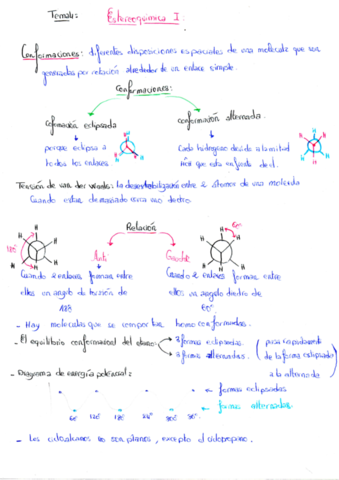 Tema 4: Estereoquímica I.
Conformaciones: diferentes disposiciones espaciales de una molécula que son
generadas por rotación alrededor de un enlace simple.
Conformaciones:
Conformación eclipsada
conformación alternada.
porque eclipsa a
todos los enlaces
Cada hidrógeno divide a la mitad
H H que está enfrente de él.
Tensión de van der Waals: la desestabilización entre 2 átomos de una molécula
Cuando están demasiado cerca uno de otro
Relación
180°
60°
Anti
Gauche
Cuando 2 enlaces forman entre
ellos un angulo de torsión de
180º
Cuando 2 enlaces forman entre
ellos un angulo diedro de
60º.
- Hay moléculas que se comportan como conformadas.
- El equilibrio conformacional del etano:
3 formas eclipsadas
3 formas alternadas.
para
de la forma eclipsada
a la alternada
- Diagrama de energía potencial:
formas eclipsadas
formas alternadas.
60° 120° 180° 240° 300° 360°
- Los cicloalcanos no son planos, excepto el ciclopropano.